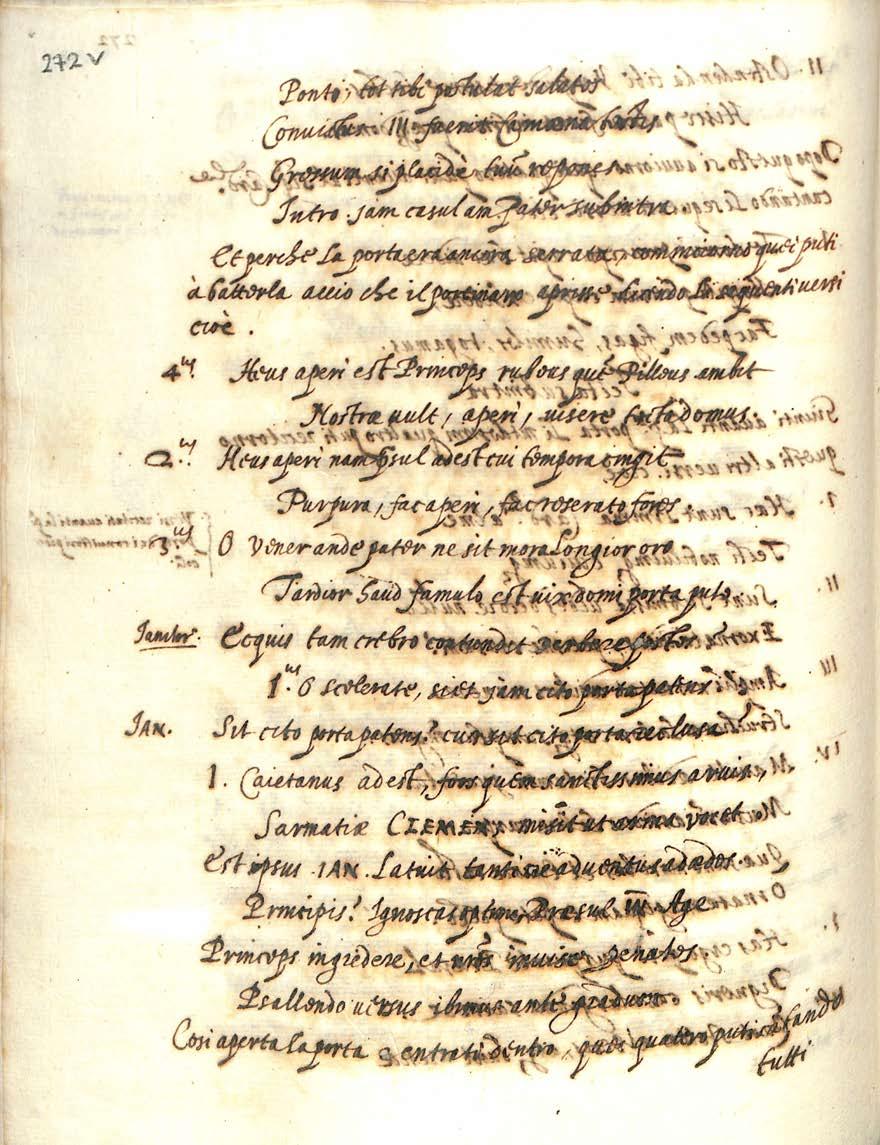 272 v
Ponto, tot tibi postulat salutes
Convictus III fuerit Camœna
Gressum si placidè tuũ repones
Intro jam casulam Pater subintra
Et perche la porta era ancora serrata, cominciorno quei puti
à batterla accio che il portinaro aprisse dicendo li seguenti versi
cioè .
4.us Heus aperi est Princeps rubeus quẽ Pilleus ambit
Nostræ uult, aperi, uisere tecta domus.
2.us Heus aperi nam Psul adest cui tempora cingit
Purpura, fac aperi, fac reserato fores
3.us O venerande pater ne sit mora Longior oro
Tardior haud famulo est uix domi porta puto
Ianitor. Ecquis tam crebro contundit verbere postes
1.us O scelerate, siet jam cito porta patens
IAN. Sit cito porta patens? cur sit cito porta reclusa
1. Caietanus adest, fors quem sanctissimus aruis,
Sarmatiæ CLEMENS misit ut arma vocet
Est ipsus . IAN . Latuit tanti me aduentus ad ædes
Principis? Ignoscas optime Præsul III Age
Princeps ingredere, et nrõs inuise penates
Psallendo uersus ibimus ante gradum
Cosi aperta la porta e entrati dentro, quei quatero puti cãtando
tutti